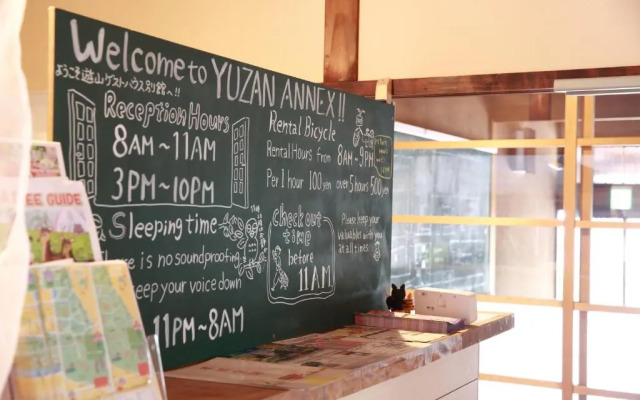 Welcome to YUZAN ANNEX!!
ようこそ遊山ゲストハウス別館へ!!
Reception Hours
8AM~11AM
3PM~10PM
Sleeping time
There is no soundproofing
keep your voice down
11PM~8AM
Rental Bicycle
Rental Hours from 8AM~9PM
Per 1 hour 100yen over 5 hours 500yen
check out
time
before
11AM
Please keep your
valuables with you
at all times
EE GUIDE